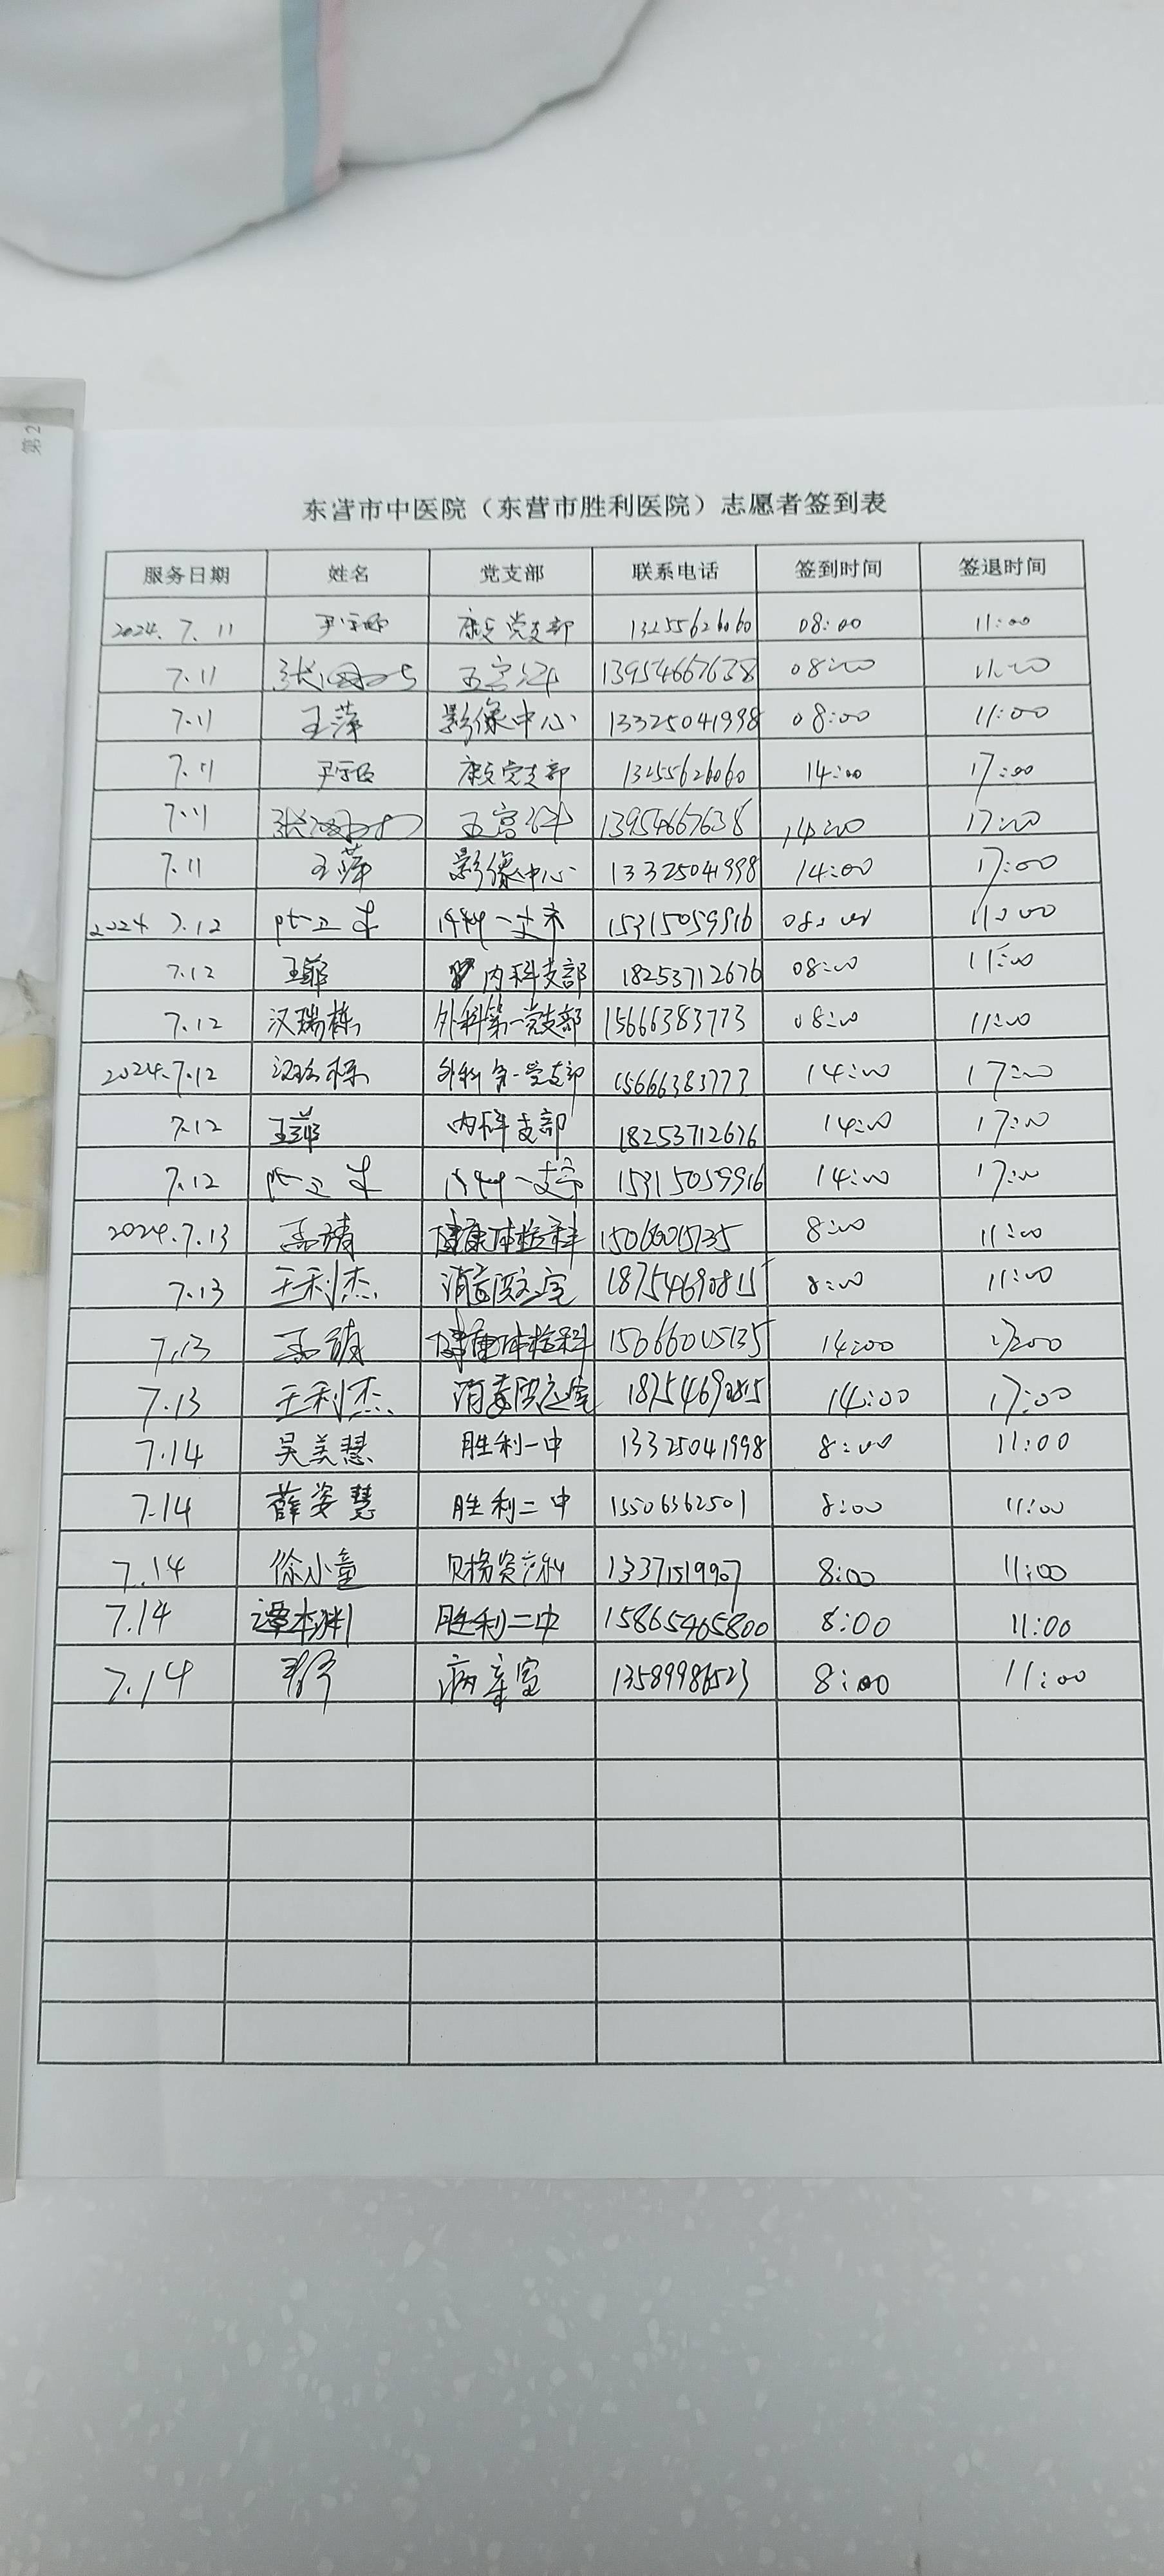 第2
东营市中医院（东营市胜利医院）志愿者签到表
服务日期 姓名 党支部 联系电话 签到时间 签退时间
2024.7.11 党支部 13255626060 08:00 11:00
7.11 13954667638 08:00 11:00
7.11 王萍 影像中心 13325041998 08:00 11:00
7.11 党支部 13255626060 14:00 17:00
7.11 13954667638 14:00 17:00
7.11 王萍 影像中心 13325041998 14:00 17:00
2024.7.12 15315059916 08:00 11:00
7.12 王菲 内科支部 18253712676 08:00 11:00
7.12 汉瑞栋 外科第一党支部 15666383773 08:00 11:00
2024.7.12 汉瑞栋 外科第一党支部 15666383773 14:00 17:00
7.12 王菲 内科支部 18253712676 14:00 17:00
7.12 15315059916 14:00 17:00
2024.7.13 孟靖 健康体检科 8:00 11:00
7.13 王利杰 消毒供应室 18754690815 8:00 11:00
7.13 孟靖 健康体检科 14:00 17:00
7.13 王利杰 消毒供应室 18754690815 14:00 17:00
7.14 吴美慧 胜利一中 13325041998 8:00 11:00
7.14 薛姿慧 胜利二中 15506362501 8:00 11:00
7.14 徐小童 13371519907 8:00 11:00
7.14 谭本渊 胜利二中 15865465800 8:00 11:00
7.14 病案室 13589986523 8:00 11:00